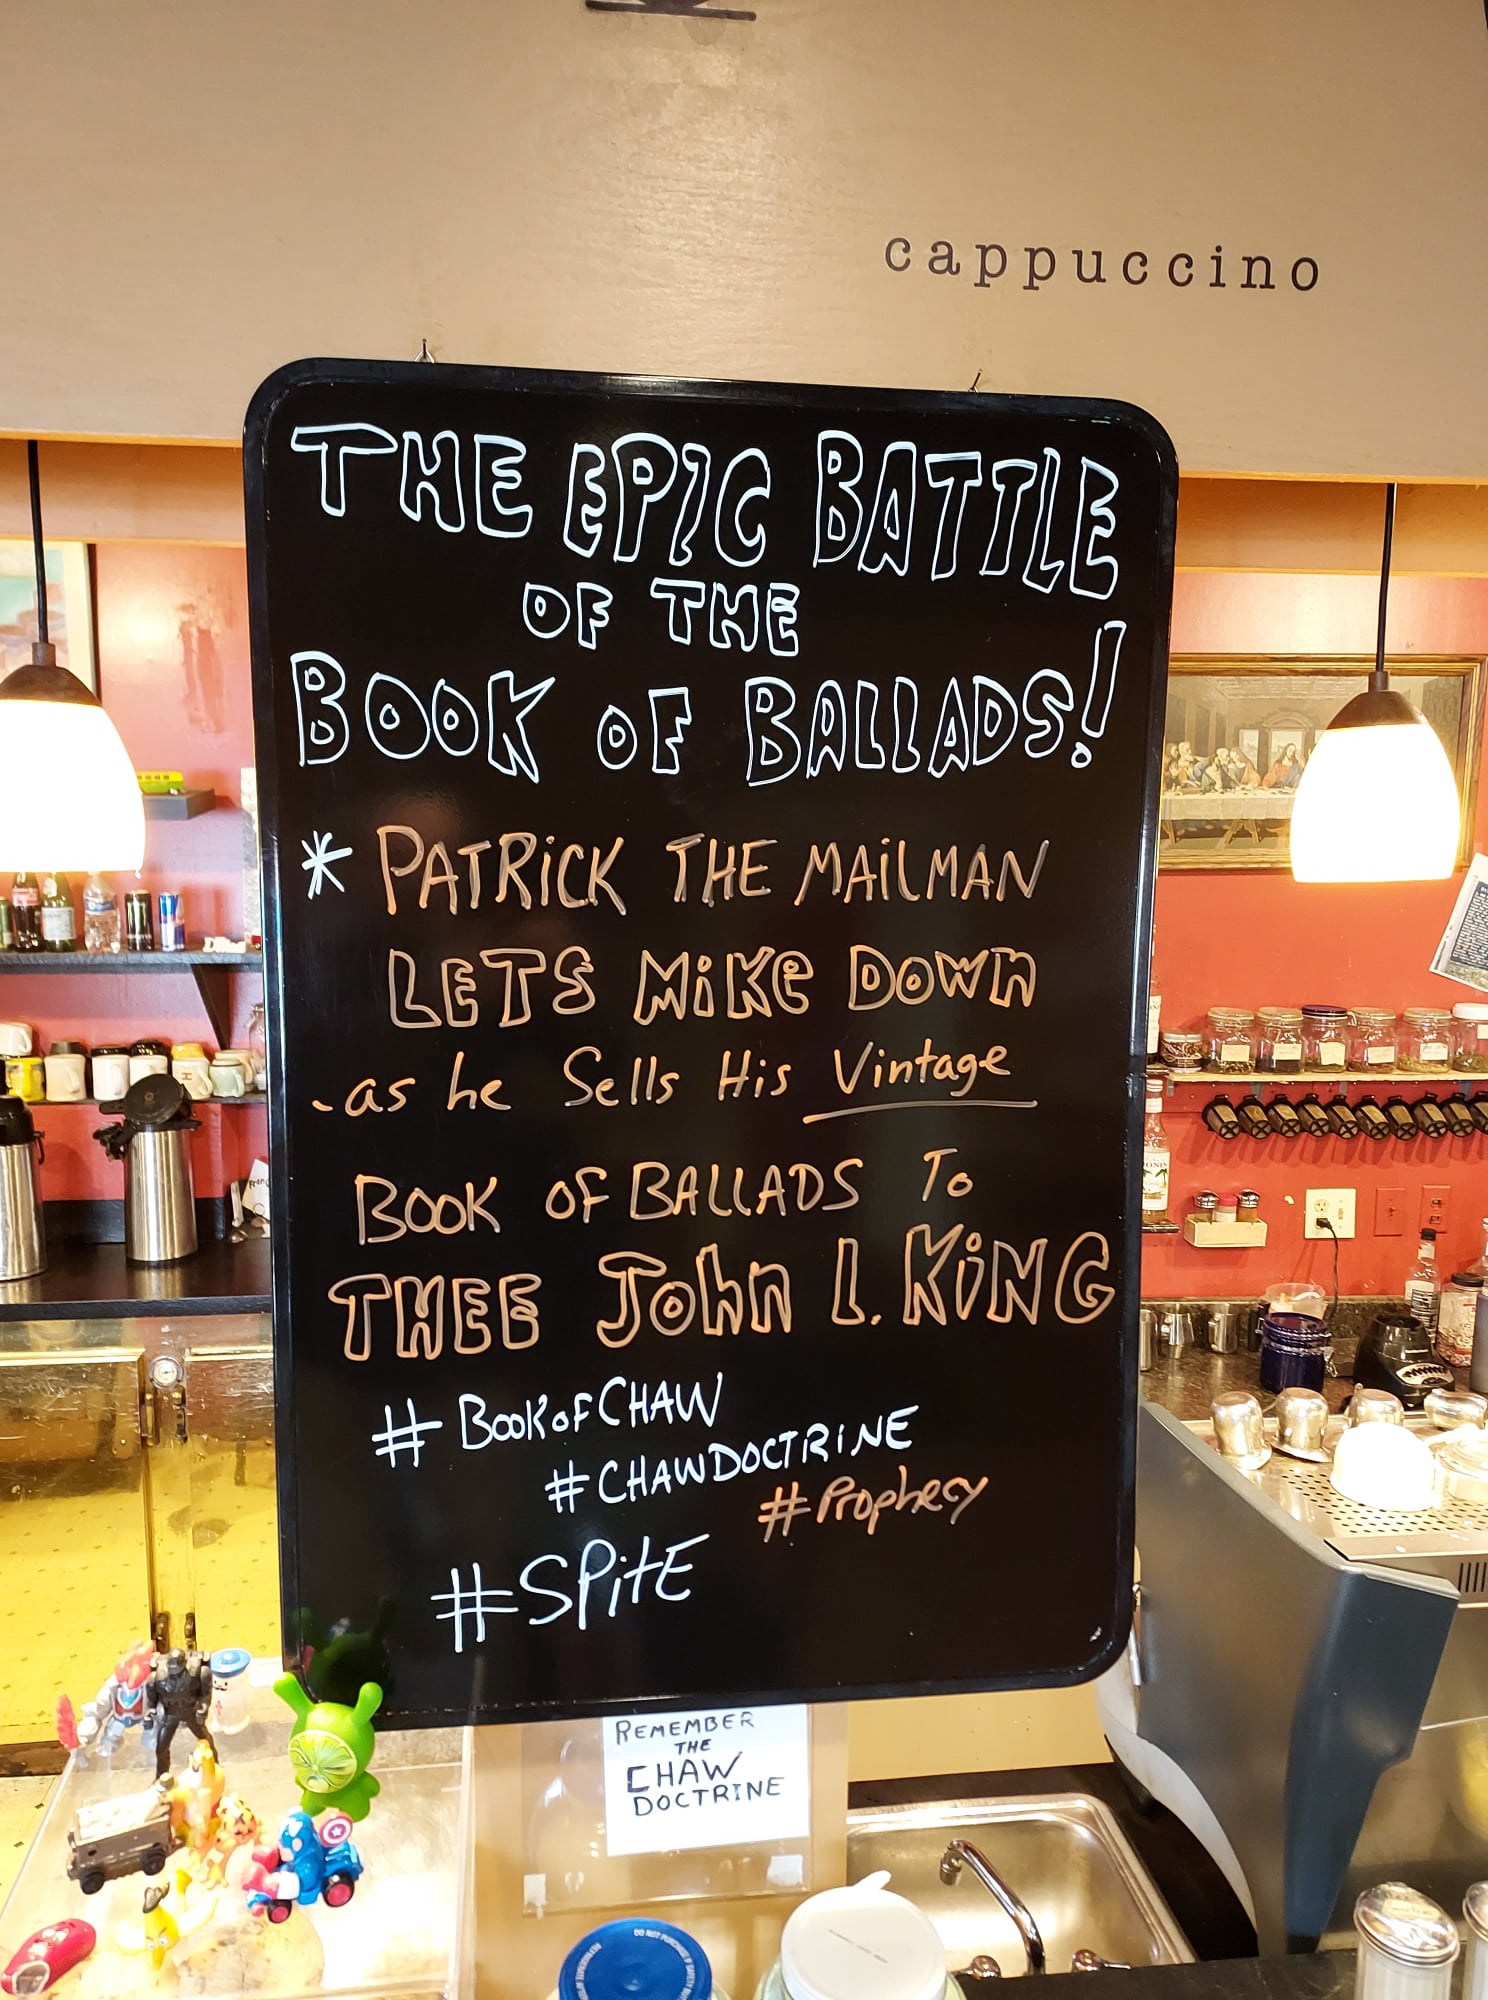 cappuccino
THE EPIC BATTLE
OF THE
BOOK OF BALLADS!
* PATRICK THE MAILMAN
LETS MIKE DOWN
-as he Sells His Vintage
BOOK OF BALLADS To
THEE John L. KING
#BookofCHAW
#CHAWDOCTRINE
#Prophecy
#SPitE
REMEMBER
THE
CHAW
DOCTRINE